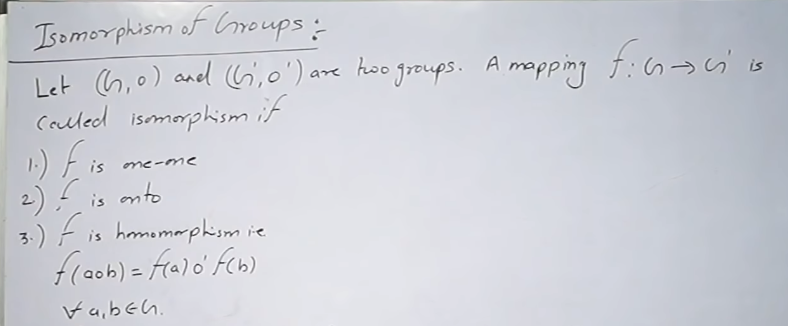 Isomorphism of Groups :-
Let (G, o) and (G', o') are two groups. A mapping f: G → G' is
called isomorphism if
1.) f is one-one
2.) f is onto
3.) f is homomorphism i.e
f(aob) = f(a) o' f(b)
∀ a, b ∈ G.